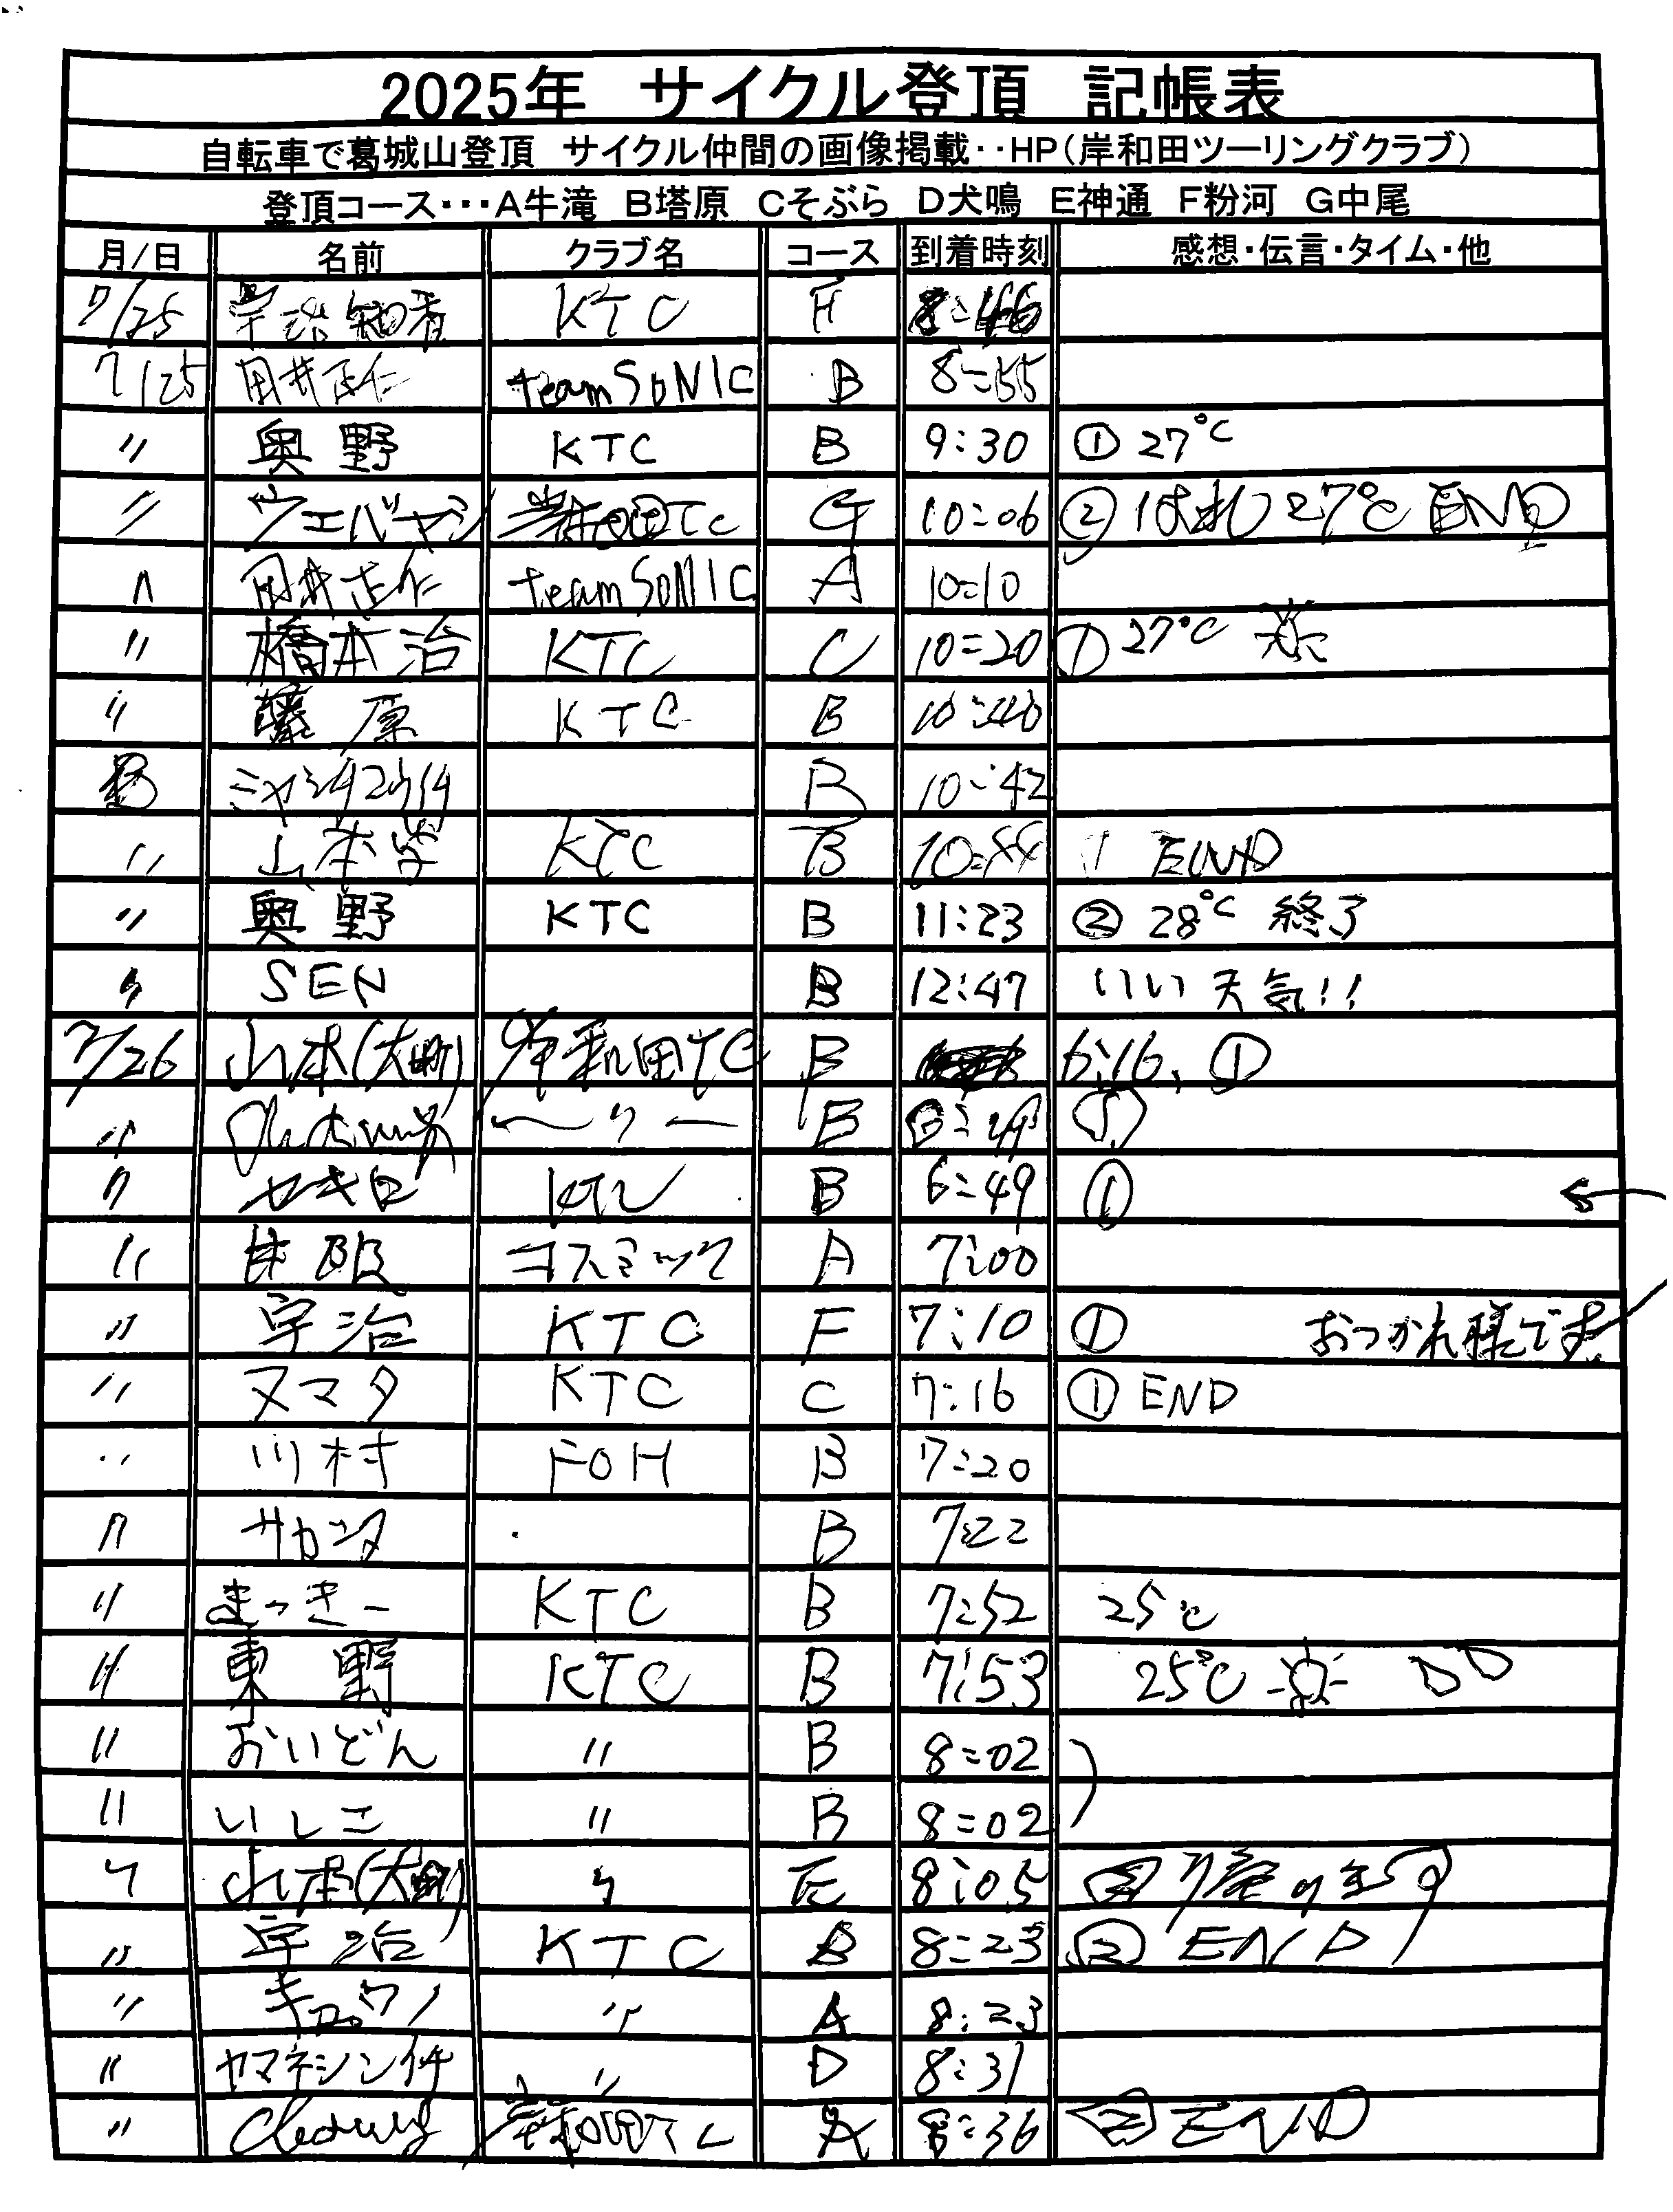 2025年 サイクル登頂 記帳表
自転車で葛城山登頂 サイクル仲間の画像掲載‥HP(岸和田ツーリングクラブ)
登頂コース・・・A牛滝 B塔原 Cそぶら D犬鳴 E神通 F粉河 G中尾
月/日 名前 クラブ名 コース 到着時刻 感想・伝言・タイム・他
7/25 宇治 KTC F 8:46
7/25 田井正仁 teamSONIC B 8:55
〃 奥野 KTC B 9:30 ① 27℃
〃 ウエバヤシ 岸和田TC G 10:06 ② はれ 27℃ END
〃 田井正仁 teamSONIC A 10:10
〃 橋本治 KTC C 10:20 ① 27℃
〃 藤原 KTC B 10:40
B 10:42
〃 山本 KTC B 10:44 1 END
〃 奥野 KTC B 11:23 ② 28℃ 終了
〃 SEN B 12:47 いい天気!!
7/26 山本(大町) 岸和田TC B 6:16, ①
〃 〃 B ①
〃 KTC B 6:49 ①
〃 コスミック A 7:00
〃 宇治 KTC F 7:10 ① おつかれ様です
〃 ヌマタ KTC C 7:16 ① END
〃 川村 FOH B 7:20
〃 B 7:22
〃 まっきー KTC B 7:52 25℃
〃 東野 KTC B 7:53 25℃
〃 おいどん 〃 B 8:02
〃 いしこ 〃 B 8:02
〃 山本(大町) 〃 E 8:05 ②
〃 宇治 KTC B 8:23 ② END
〃 〃 A 8:23
〃 ヤマネシンイチ 〃 D 8:31
〃 岸和田TC A 8:36 ② END